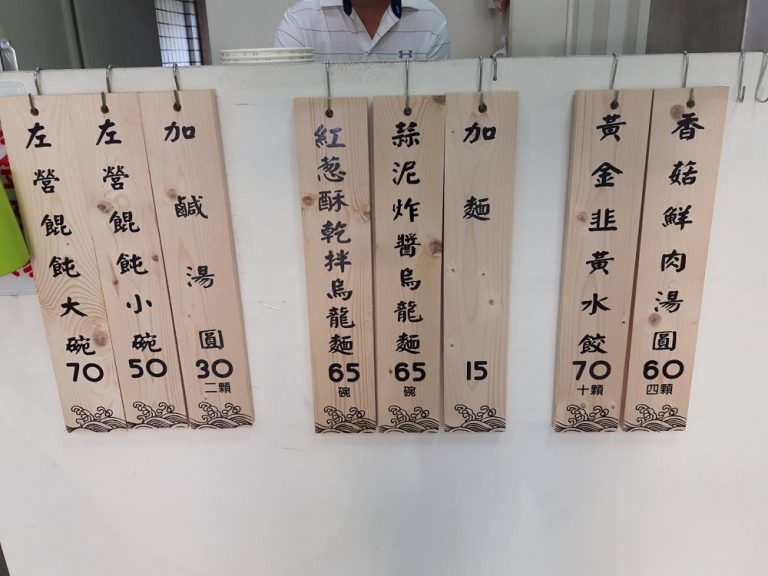 左營餛飩大碗
70
左營餛飩小碗
50
加鹹湯圓
30
二顆
紅蔥酥乾拌烏龍麵
65
碗
蒜泥炸醬烏龍麵
65
碗
加麵
15
黃金韭黃水餃
70
十顆
香菇鮮肉湯圓
60
四顆